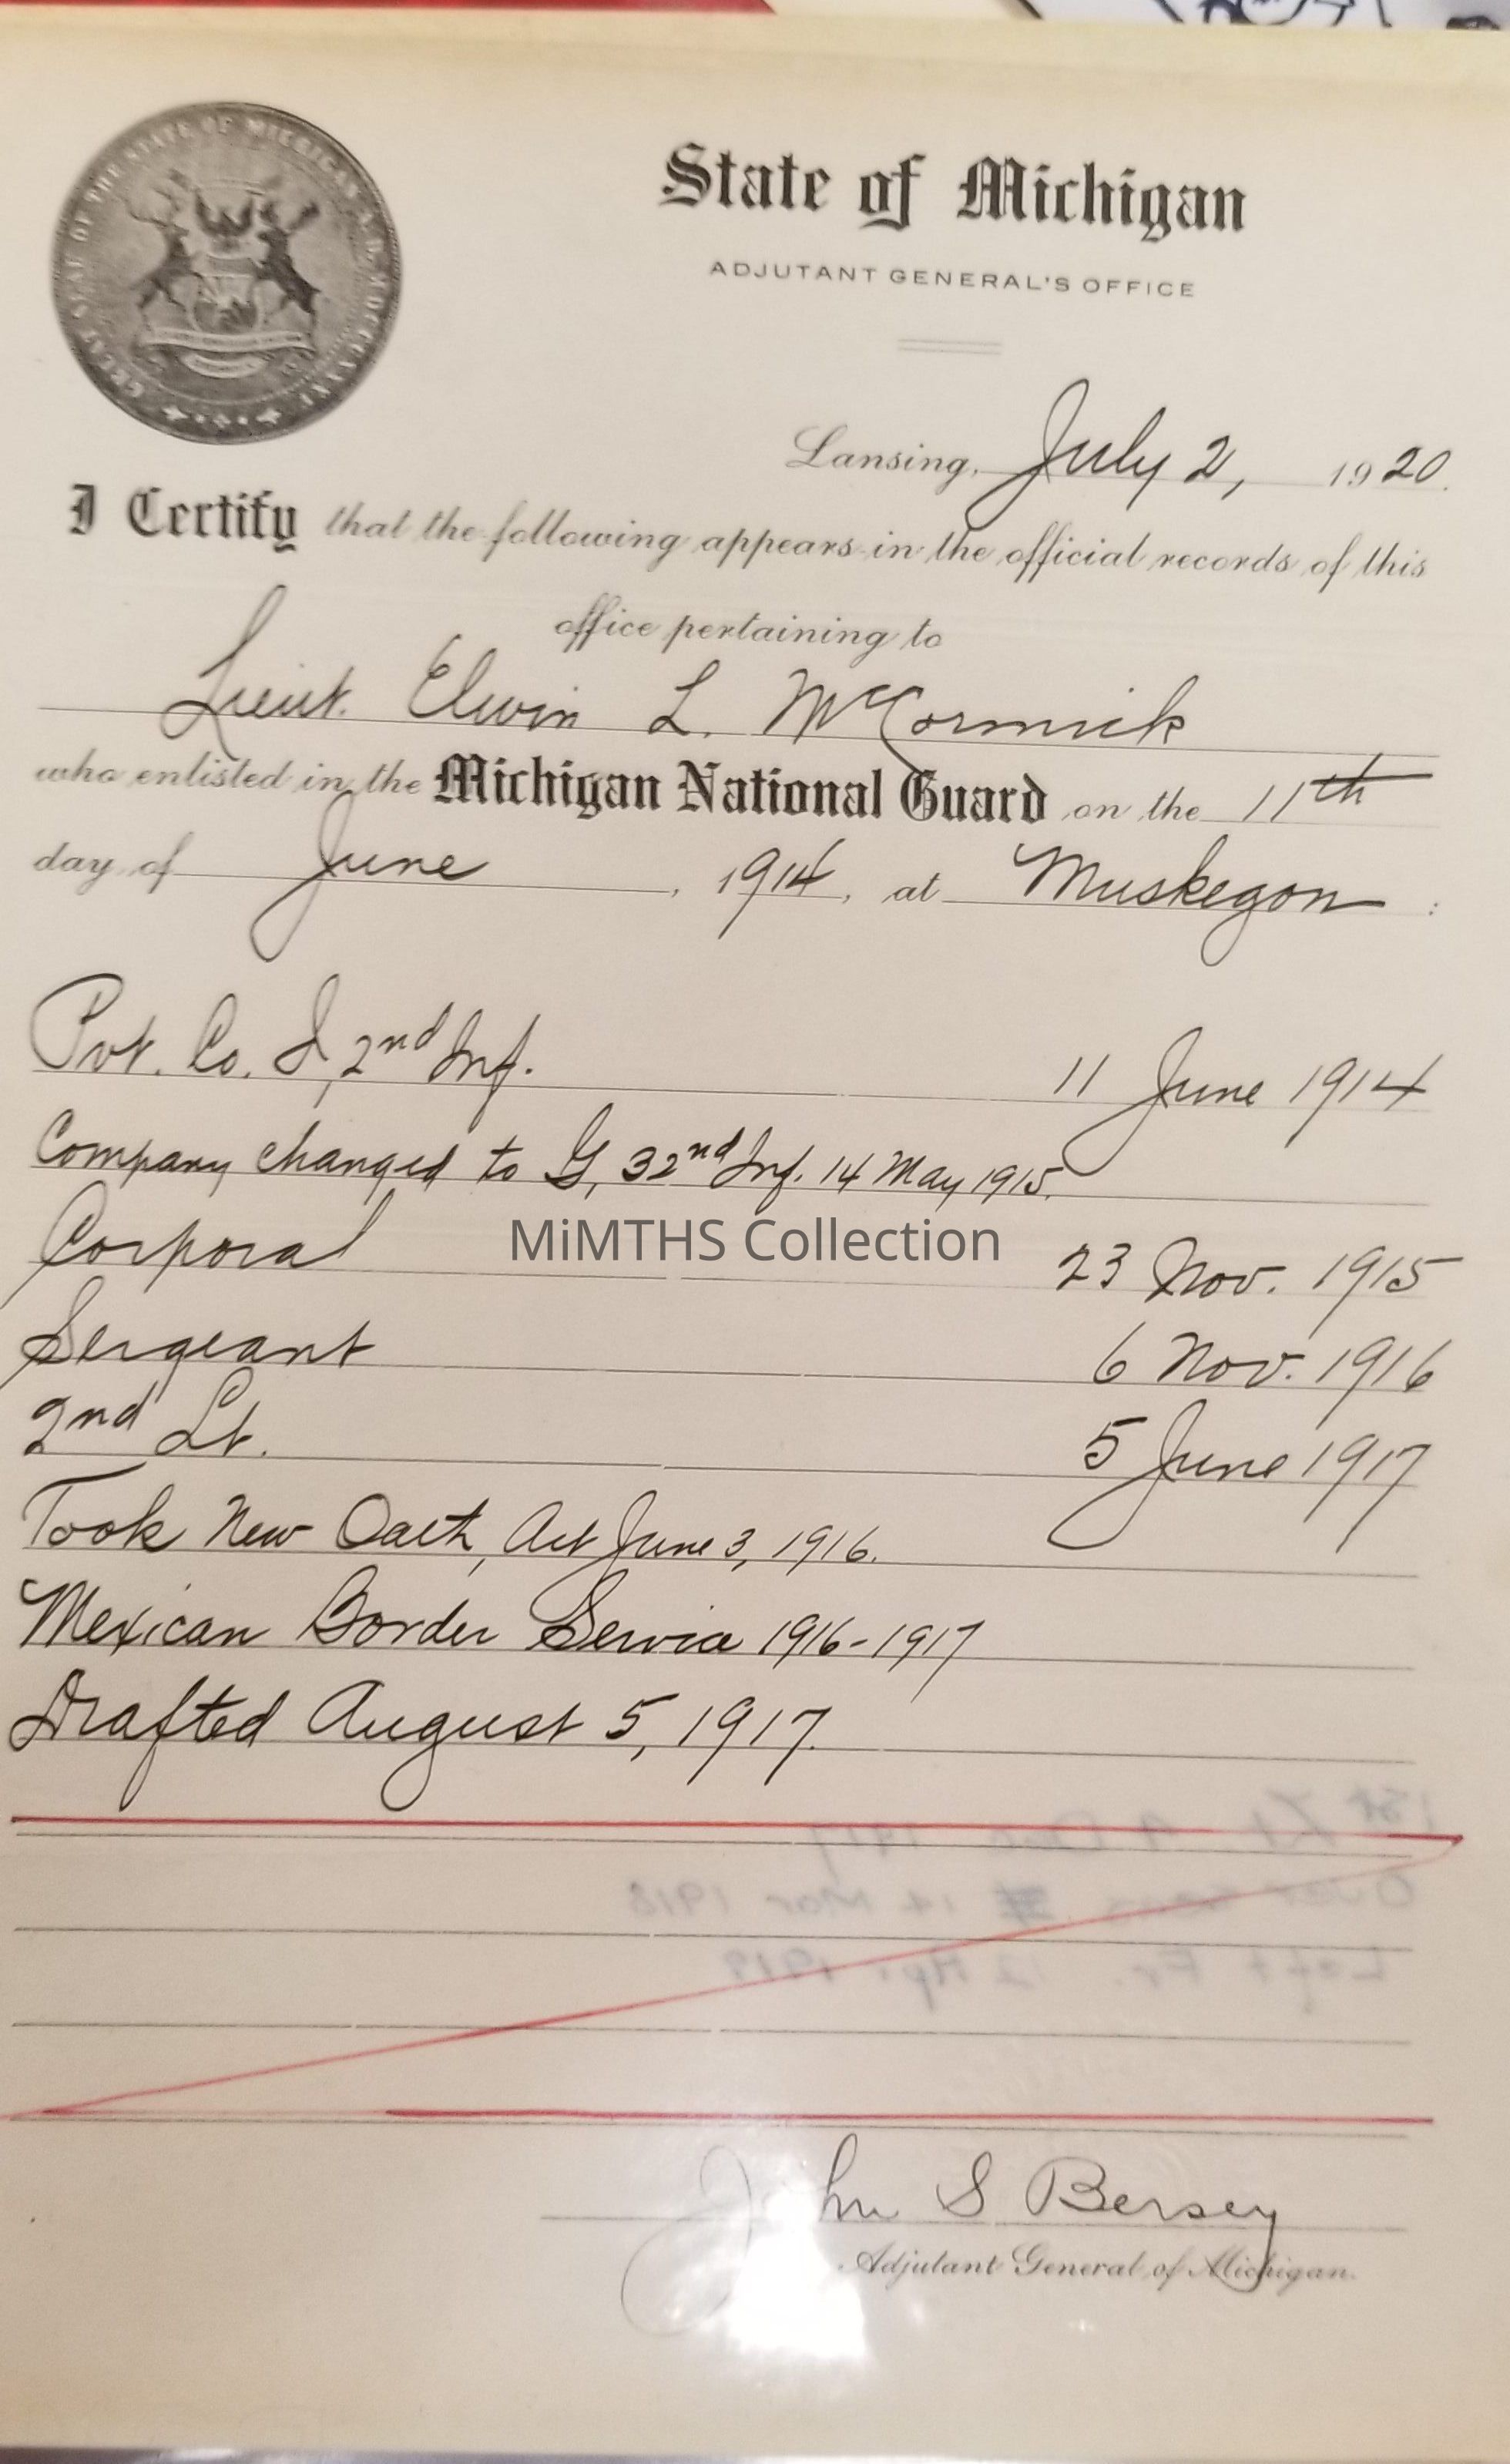 State of Michigan
ADJUTANT GENERAL'S OFFICE
Lansing, July 2, 1920.
I Certify that the following appears in the official records of this
office pertaining to
Lieut. Elwin L. McCormick
who enlisted in the Michigan National Guard on the 11th
day of June, 1914, at Muskegon:
Pvt. Co. I, 2nd Inf. 11 June 1914
Company changed to G, 32nd Inf. 14 May 1915.
Corporal 23 Nov. 1915
MiMTHS Collection
Sergeant 6 Nov. 1916
2nd Lt. 5 June 1917
Took New Oath, Act June 3, 1916.
Mexican Border Service 1916-1917
Drafted August 5, 1917.
1st Lt 1917
14 Mar 1918
Left Fr. 12 Apr 1919
John S Bersey
Adjutant General of Michigan.